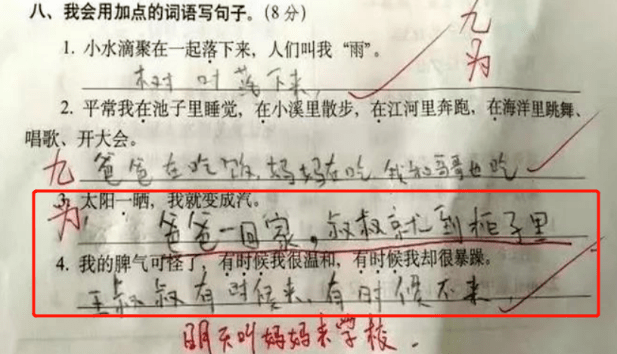 八、我会用加点的词语写句子。(8分)
1. 小水滴聚在一起落下来，人们叫我“雨”。
树叶落下来
2. 平常我在池子里睡觉，在小溪里散步，在江河里奔跑，在海洋里跳舞、
唱歌、开大会。
爸爸在吃饭，妈妈在吃 我和哥哥也吃
3. 太阳一晒，我就变成汽。
爸爸一回家，叔叔就到柜子里
4. 我的脾气可怪了，有时候我很温和，有时候我却很暴躁。
王叔叔有时候来，有时候不来
明天叫妈妈来学校.
九
为
九
为